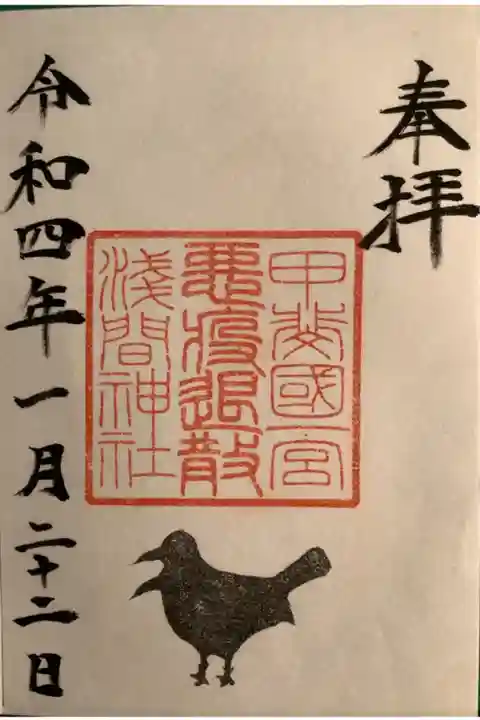 奉拝
甲斐國一宮
悪疫退散
浅間神社
令和四年一月二十二日